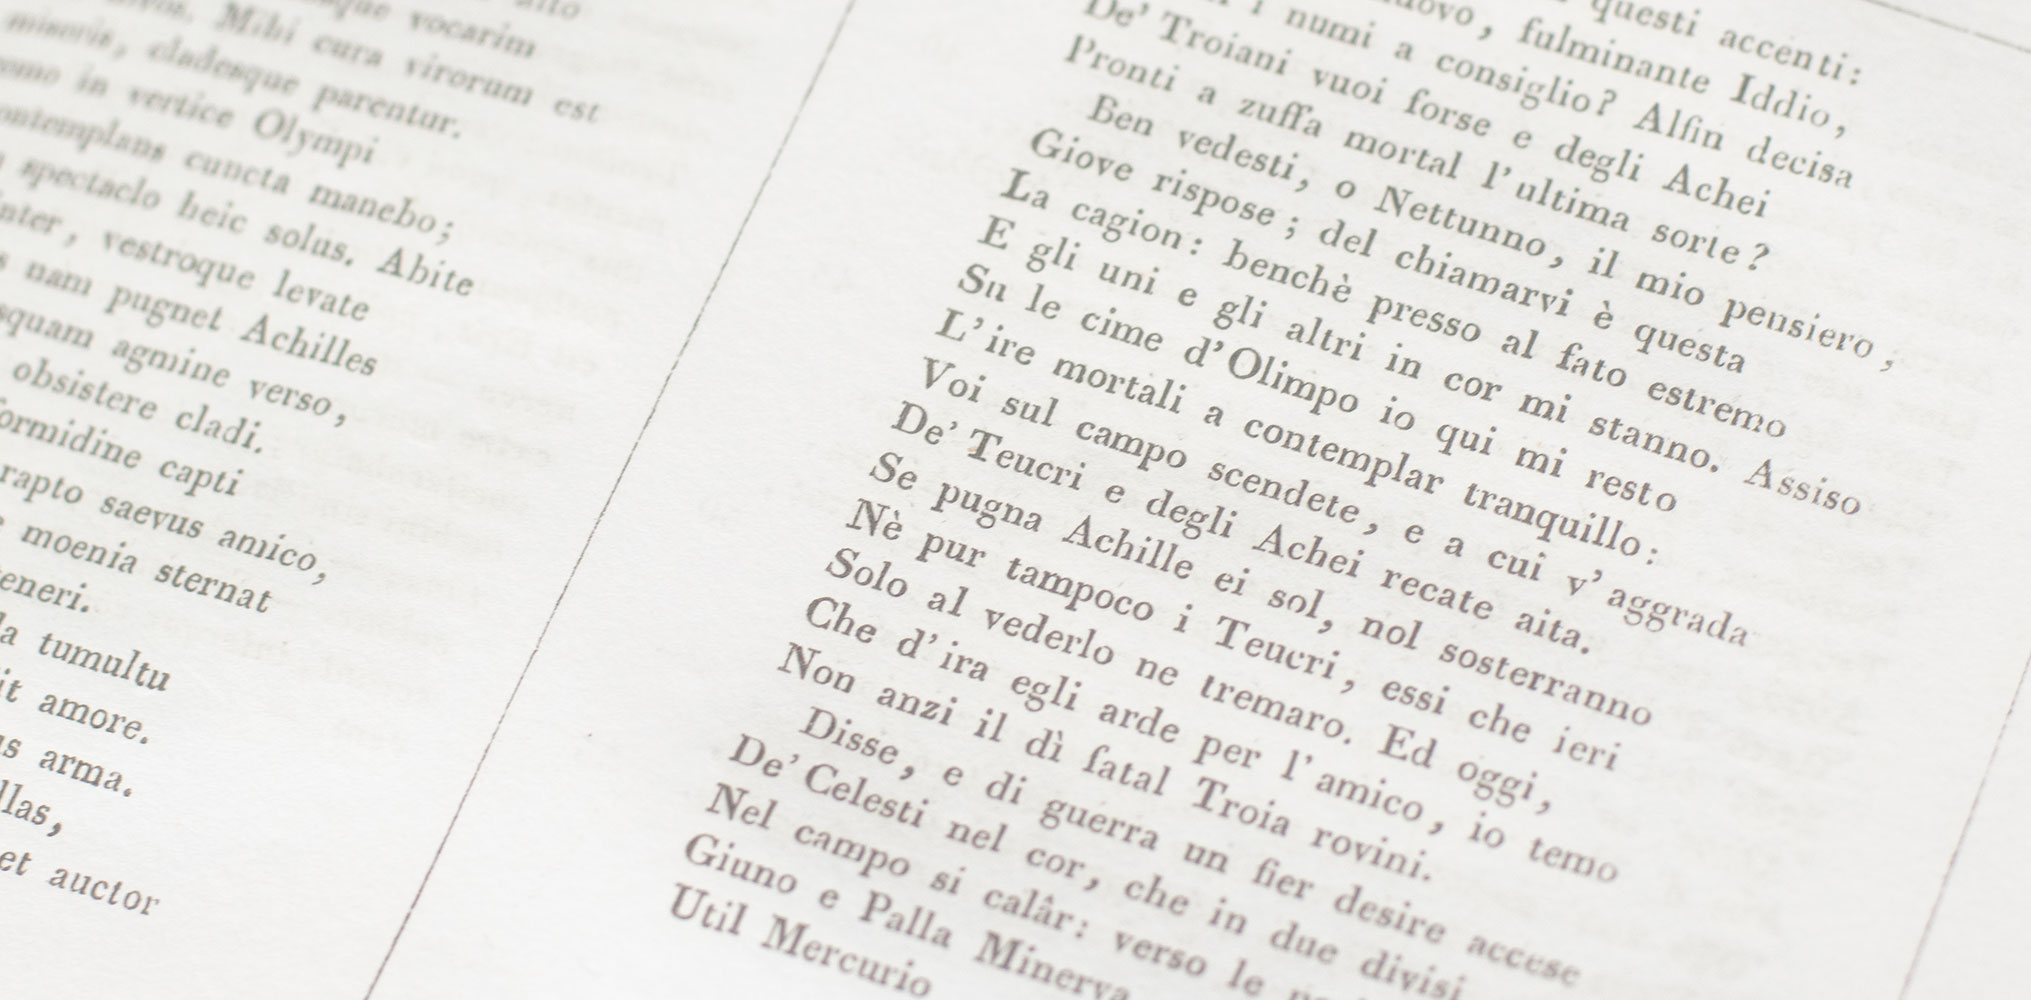 alto
vocarim
Mihi cura virorum est
minoris, cladesque parentur.
in vertice Olympi
contemplans cuncta manebo;
spectaclo heic solus. Abite
vestroque levate
nam pugnet Achilles
agmine verso,
obsistere cladi.
formidine capti
rapto saevus amico,
moenia sternat
tumultu
amore.
arma.
et auctor
questi accenti:
fulminante Iddio,
i numi a consiglio? Alfin decisa
De' Troiani vuoi forse e degli Achei
Pronti a zuffa mortal l'ultima sorte?
Ben vedesti, o Nettunno, il mio pensiero,
Giove rispose; del chiamarvi è questa
La cagion: benchè presso al fato estremo
E gli uni e gli altri in cor mi stanno. Assiso
Su le cime d'Olimpo io qui mi resto
L'ire mortali a contemplar tranquillo:
Voi sul campo scendete, e a cui v'aggrada
De' Teucri e degli Achei recate aita.
Se pugna Achille ei sol, nol sosterranno
Nè pur tampoco i Teucri, essi che ieri
Solo al vederlo ne tremaro. Ed oggi,
Che d'ira egli arde per l'amico, io temo
Non anzi il dì fatal Troia rovini.
Disse, e di guerra un fier desire accese
De' Celesti nel cor, che in due divisi
Nel campo si calâr: verso le
Giuno e Palla Minerva
Util Mercurio